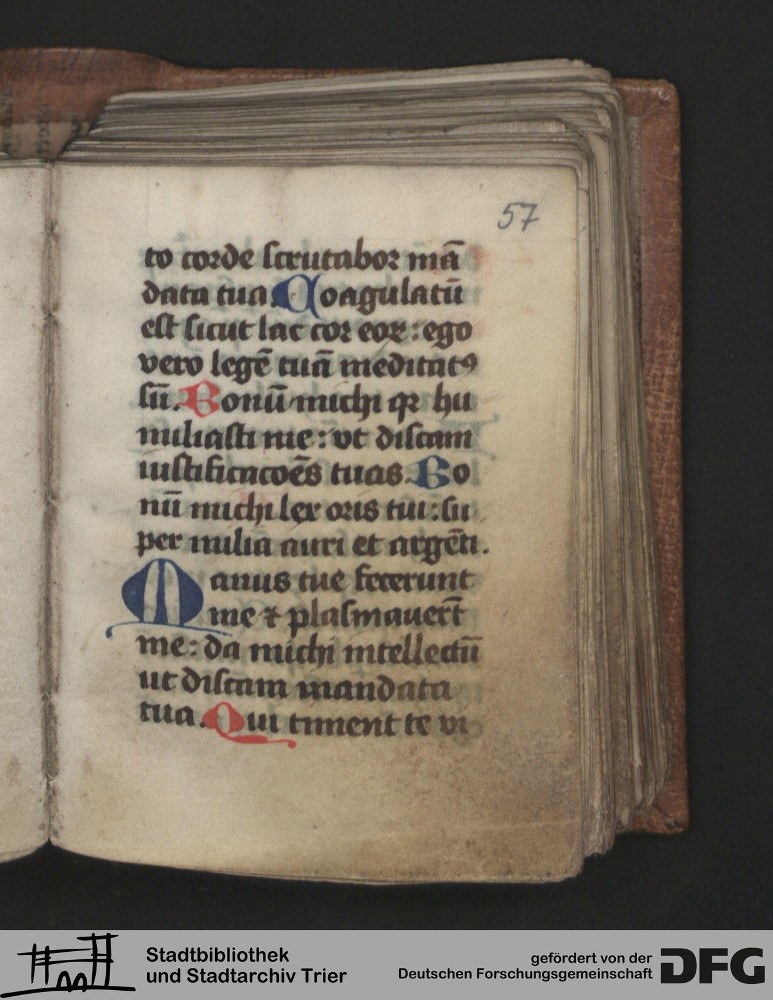 57
to corde scrutabor mā
data tua. Coagulatū
est sicut lac cor eoꝝ: ego
vero legē tuā meditatꝰ
sū. Bonū michi qꝛ hu
miliasti me: vt discam
iustificacoēs tuas. Bo
nū michi lex oris tui: su
per milia auri et argēti.
Manus tue fecerunt
me ⁊ plasmauerūt
me: da michi intellectū
ut discam mandata
tua. Qui timent te vi
Stadtbibliothek
und Stadtarchiv Trier
gefördert von der
Deutschen Forschungsgemeinschaft
DFG